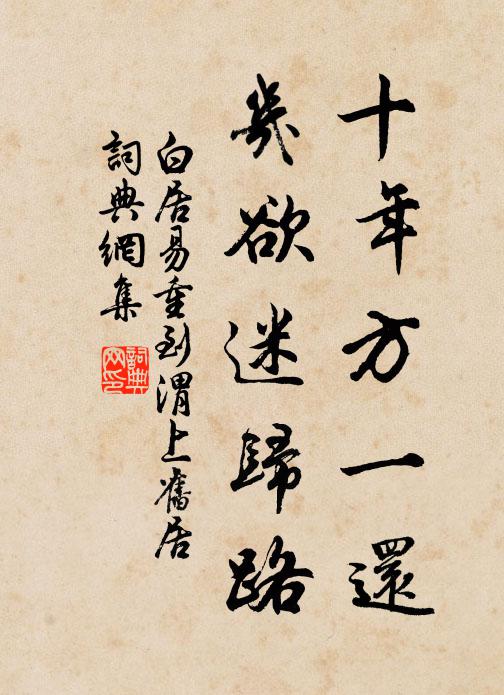 十年方一還
幾欲迷歸路
白居易重到渭上舊居
詞典網集
詞典網印